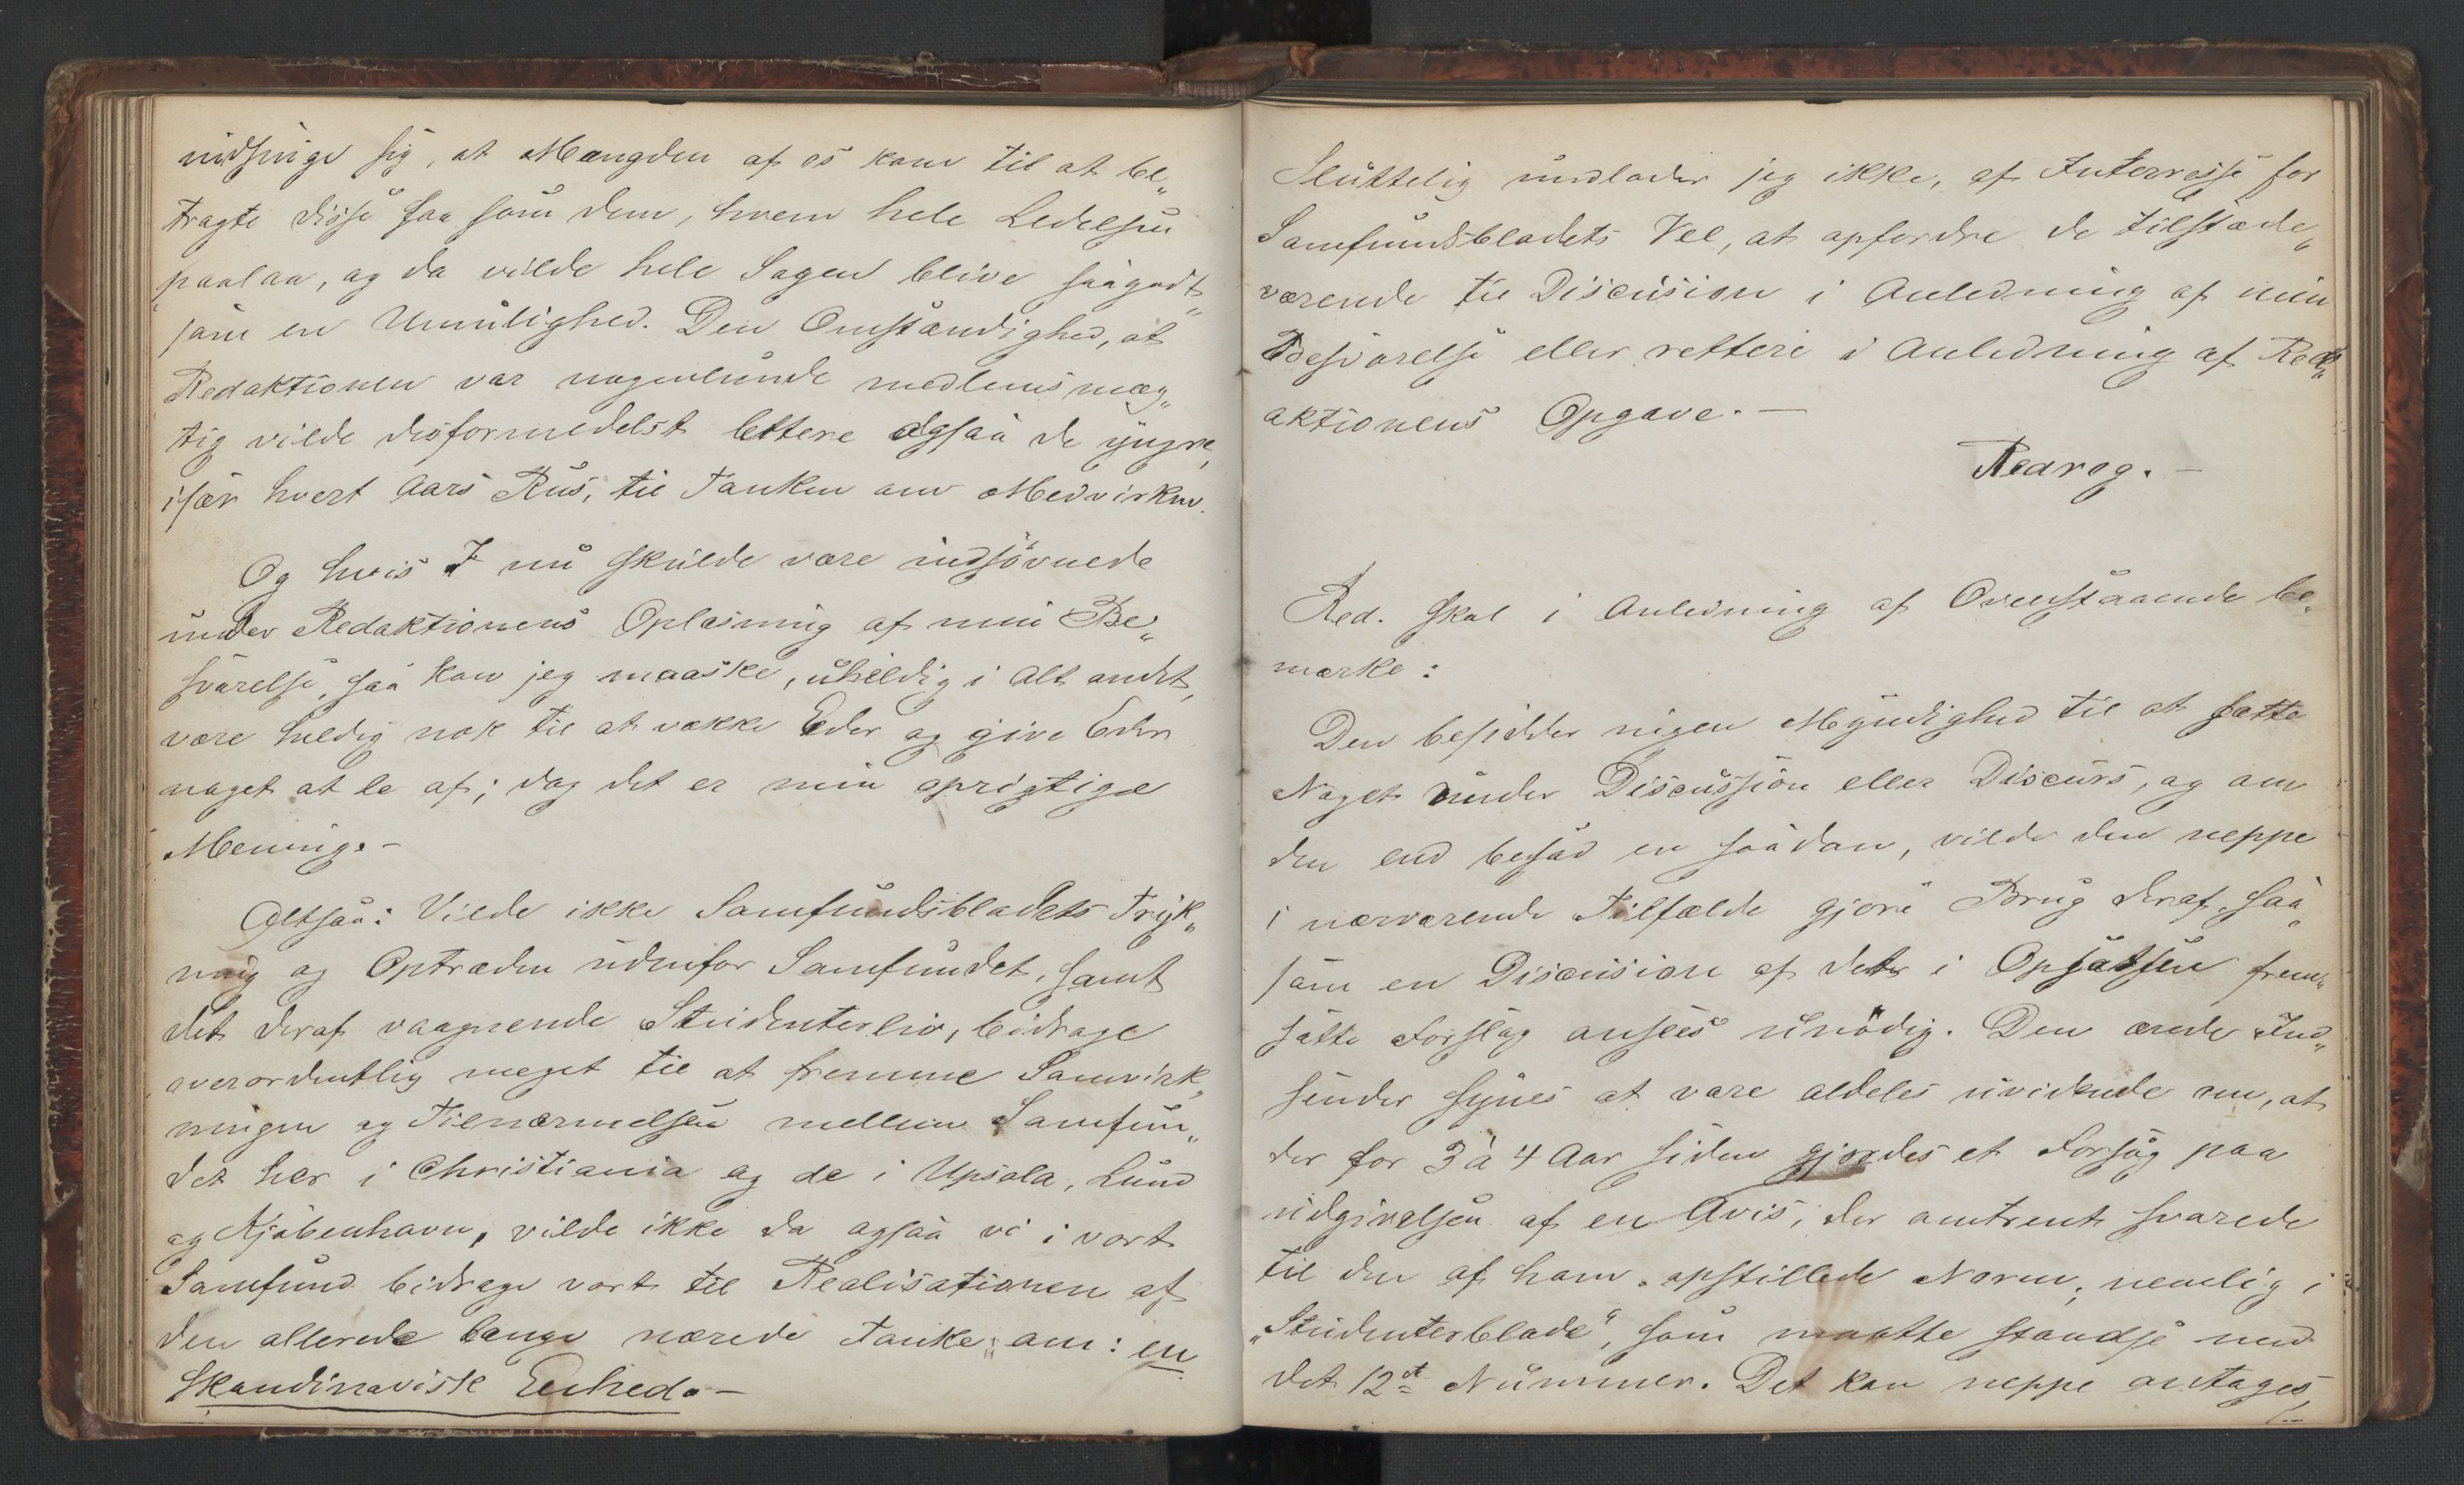 indsnige sig, at Mængden af os kom til at be„
tragte disse saa som dem, hvem hele Ledelsen
paalaa, og da vilde hele Sagen blive saagodt„
som en Umulighed. Den Omstændighed, at
Redaktionen var nogenlunde medlemsmæg„
tig vilde desformedelst lettere ogsaa de yngre,
især hvert Aars Rus, til Tanken om Medvirken.
Og hvis I nu skulde være indsövnede
under Redaktionens Oplæsning af min Be„
svarelse, saa kan jeg maaske, uheldig i Alt andet,
være heldig nok til at vække Eder og give Eder
noget at le af; dog det er min oprigtige
Mening. –
Altsaa: Vilde ikke Samfundsbladets Tryk„
ning og Optræden udenfor Samfundet, samt
det deraf vaagnende Studenterliv, bidrage
overordentlig meget til at fremme Samvirk„
ningen og Tilnærmelsen mellem Samfun„
det her i Christiania og de i Upsala, Lund
og Kjøbenhavn, vilde ikke da ogsaa vi i vort
Samfund bidrage vort til Realisationen af
den allerede længe nærede Tanke om: en
skandinavisk Eenhed. –
Sluttelig undlader jeg ikke, af Interresse for
Samfundsbladets Vel, at opfordre de tilstæde„
værende til Discusion i Anledning af min
Besvarelse eller rettere i Anledning af Red„
aktionens Opgave. –
Redrog. –
Red. skal i Anledning af Ovenstaaende be„
mærke:
Den besidder ingen Myndighed til at sætte
Noget under Discussion eller Discurs, og om
den end besad en saadan, vilde den neppe
i nærværende Tilfælde gjöre Brug deraf, saa„
som en Discusion af det i Opsatsen frem„
satte Forslag ansees unödig. Den ærede Ind„
sender synes at være aldeles uvidende om, at
der for 3 à 4 Aar siden gjordes et Forsøg paa
Udgivelsen af en Avis, der omtrent svarede
til den af ham opstillede Norm, nemlig i
„Studenterblade“, som maatte standse med
det 12te Nummer. Det kan neppe antages,